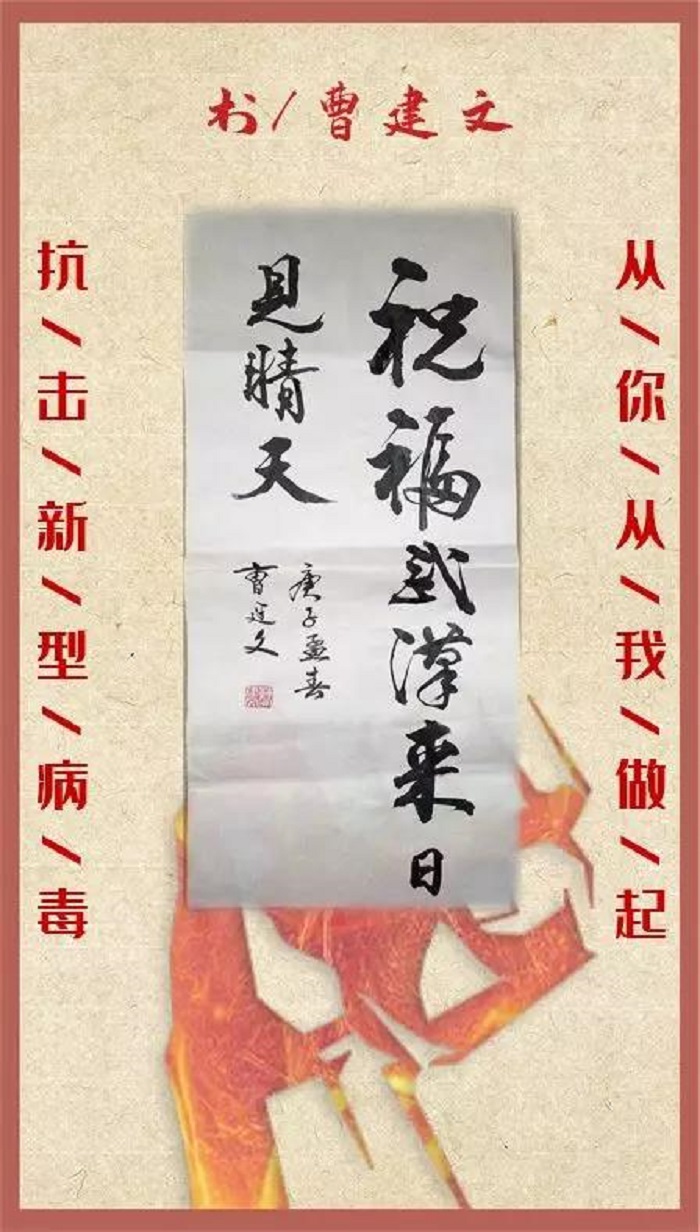 书/曹建文
从/你/从/我/做/起
祝福武漢来日
見晴天
庚子孟春
曹建文
抗/击/新/型/病/毒